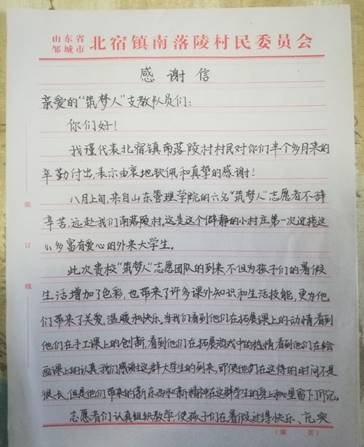 山东省
邹城市
北宿镇南落陵村民委员会
感谢信
亲爱的“筑梦人”支教队员们:
你们好!
我谨代表北宿镇南落陵村村民对你们半个多月来的
辛勤付出,表示由衷地钦佩和真挚的感谢!
八月上旬,来自山东管理学院的六名“筑梦人”志愿者不辞
辛苦,远赴我们南落陵村,这是这个僻静的小村庄第一次迎接这
么多富有爱心的外来大学生。
此次贵校“筑梦人”志愿团队的到来不但为孩子们的暑假
生活增加了色彩,也带来了许多课外知识和生活技能,更为他
们带来了关爱、温暖和快乐。当我们看到他们在拓展课上的动情,看到
他们在手工课上的创新,看到他们在拓展游戏中的热情,看到他们在绘
画课上的认真,我们感谢这群大学生的到来,即使他们在这待的时间不是
很长,但是他们带来的新东西和新精神在这群学生的身上和心里留下印记。
志愿者们认真组织教学,使孩子们在暑假过得快乐、充实
装
订
线
(第 页)